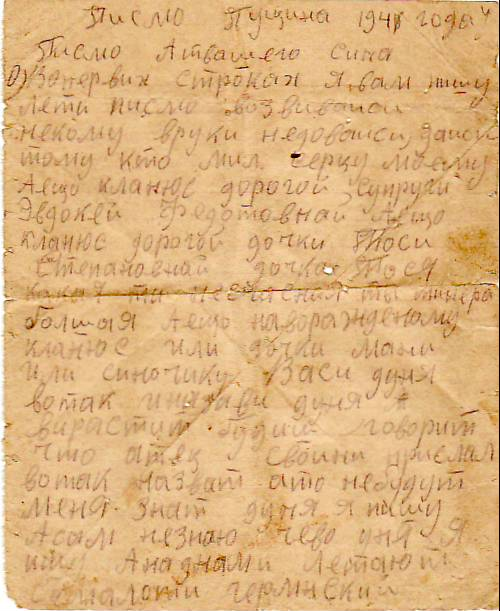 Писмо Пущина 1941 года
Писмо Атвашего сина
Вопервих строках я вам пишу
лети писмо возвивайси
некому вруки недовайси дайси
тому кто мил серцу моему
Аещо кланюс дорогой супруги
Эвдокей Федотовнай Аещо
кланюс дорогой дочки Тоси
Степановнай дочка Тося
какая ти несчасная ты типера
болшая Аещо наворажденому
кланюс или дочки Мани
или синочику Васи дуня
вотак иназави дуня
вирастит будит говорит
что атец свойни прислал
вотак назват ато небудут
меня знат дуня я пишу
Асам незнаю чево дня я
пишу Анаднами летают
самалоти герминский